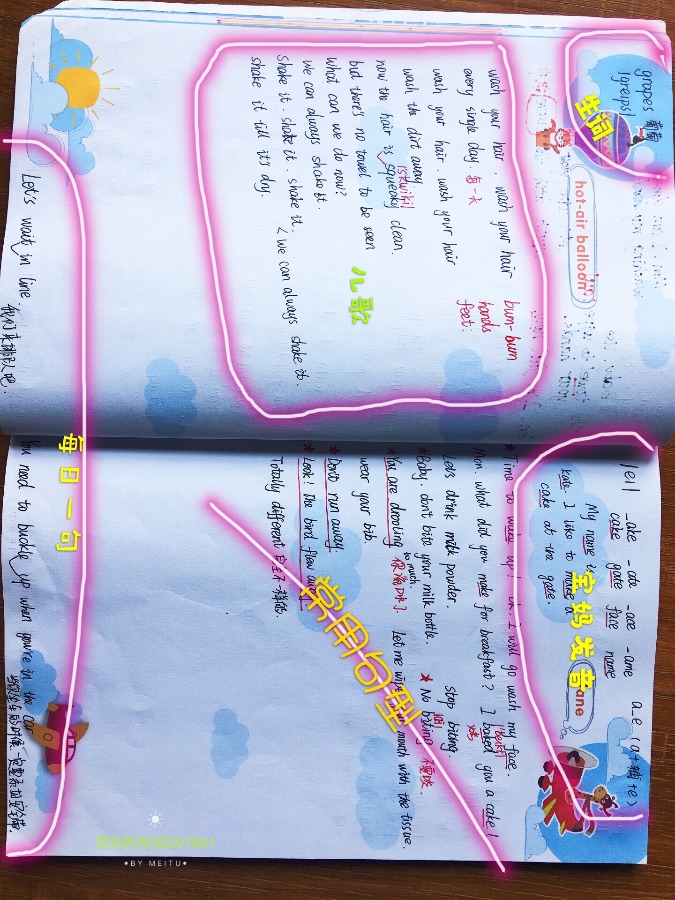 grapes 葡萄
[greips]
生词
hot-air balloon
wash your hair. wash your hair
every single day 每一天
wash your hair. wash your hair
wash the dirt away
now the hair is squeaky clean.
[ˈskwiːki]
but there's no towel to be seen
what can we do now?
we can always shake it.
shake it. shake it. shake it, < we can always shake it.
shake it till it's dry.
bum-bum
hands
feet.
儿歌
Let's wait in line.
我们来排队吧.
/eɪ/ -ake -ate -ace -ame a_e (a+辅+e)
cake gate face name
My name is
Kate. I like to make a
cake at the gate.
宝妈发音
ane
★ Time to wake up! ok. I will go wash my face.
Mom. what did you make for breakfast? I baked you a cake!
Let's drink milk powder.
★ Baby. don't bite your milk bottle. stop biting.
★ No biting 不要咬.
★ You are drooling so much. 你流口水了. Let me wipe your mouth with the tissue.
wear your bib
★ Don't run away
★ Look! The bird flew away!
Totally different 完全不一样的.
常用句型
每日一句
You need to buckle up when you're in the car
BY MEITU